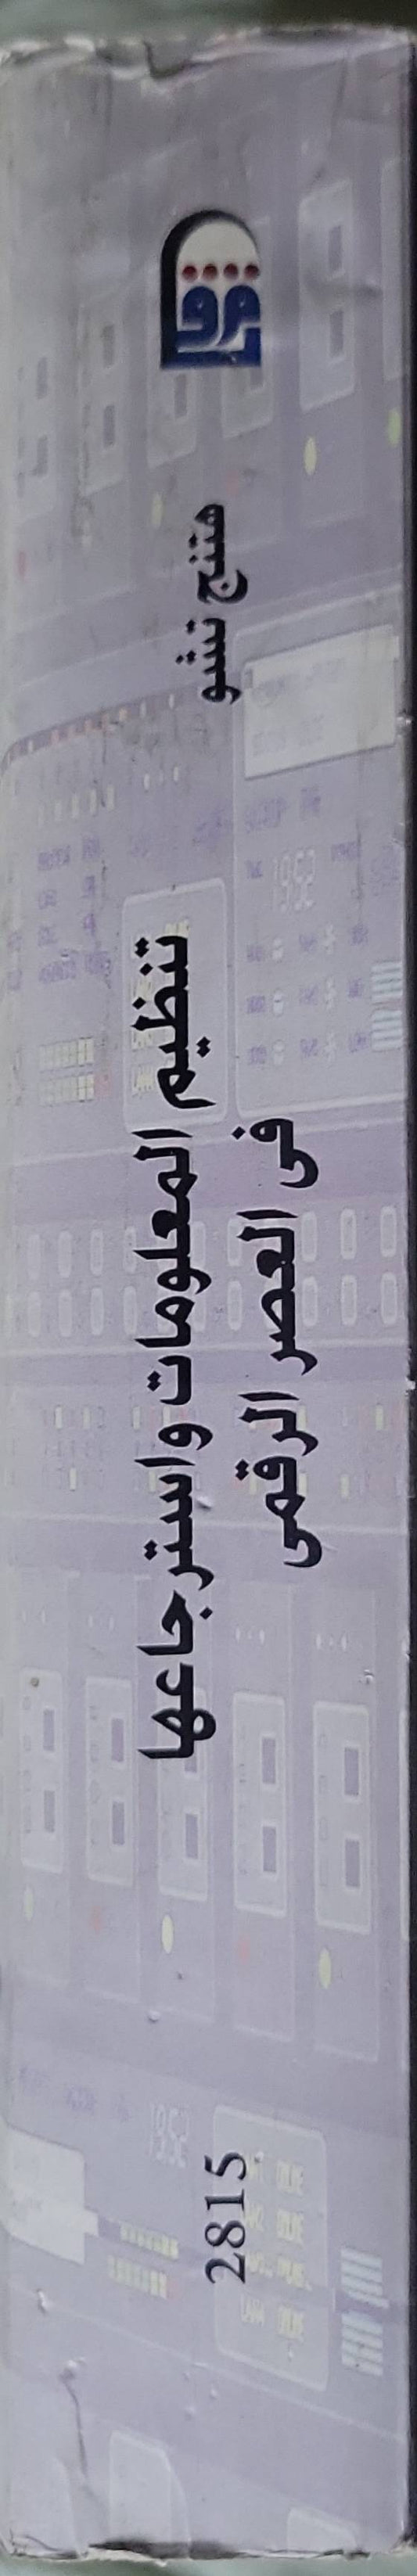 منتج تشو
تنظيم المعلومات واسترجاعها
فى العصر الرقمى
2815